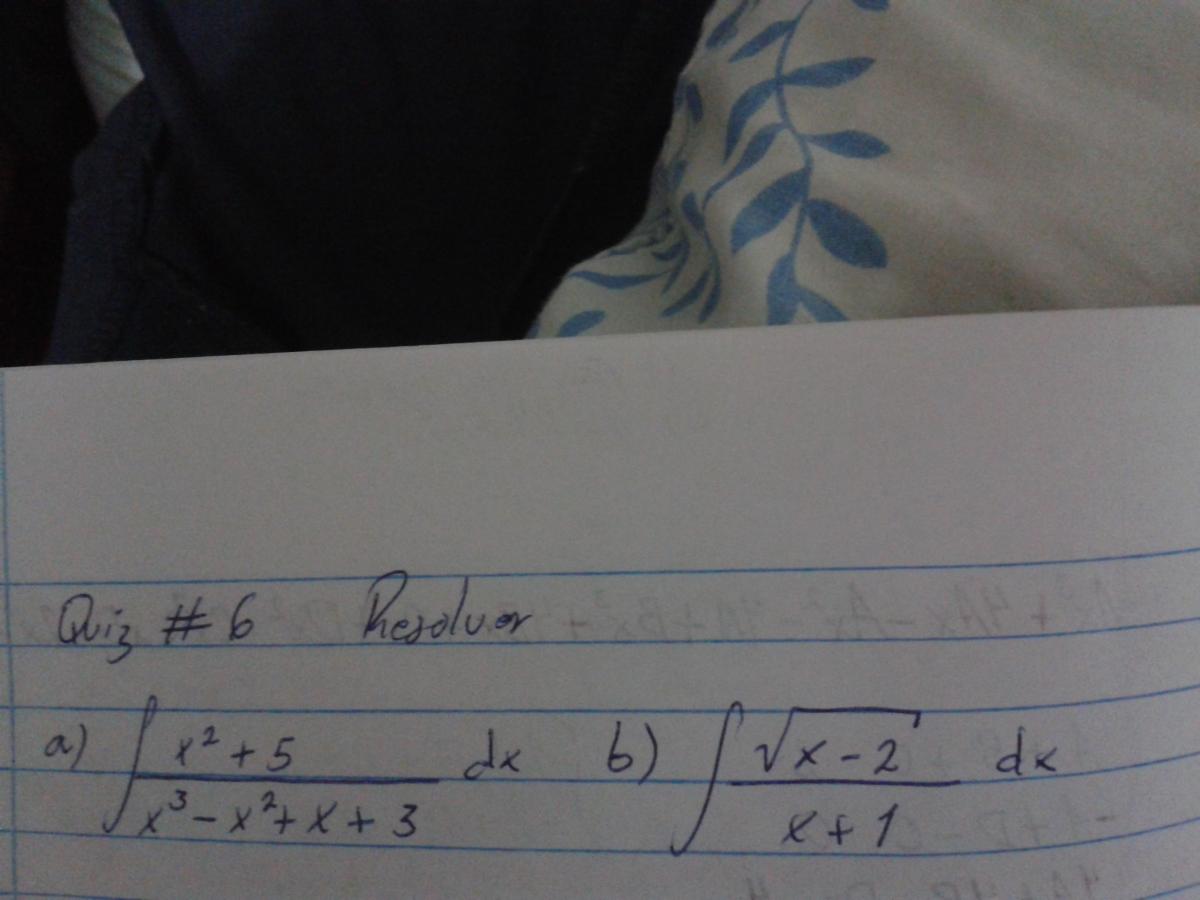 Quiz # 6 Resolver
a) ∫ x² + 5 / x³ - x² + x + 3 dx b) ∫ √x - 2 / x + 1 dx